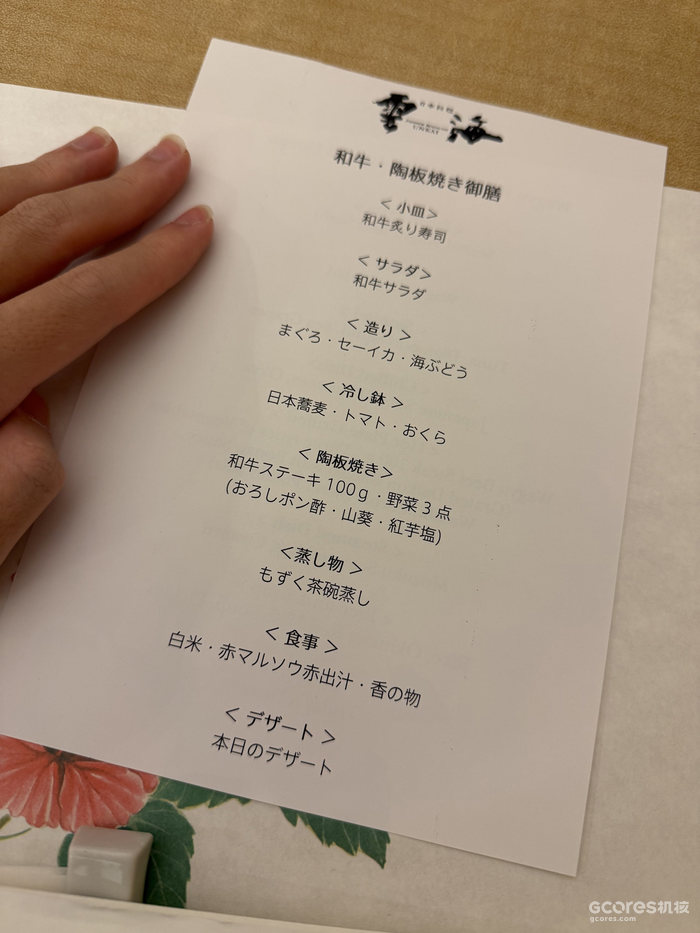 日本料理
雲海
UNKAI
和牛・陶板焼き御膳
＜小皿＞
和牛炙り寿司
＜サラダ＞
和牛サラダ
＜造り＞
まぐろ・セーイカ・海ぶどう
＜冷し鉢＞
日本蕎麦・トマト・おくら
＜陶板焼き＞
和牛ステーキ100g・野菜3点
(おろしポン酢・山葵・紅芋塩)
＜蒸し物＞
もずく茶碗蒸し
＜食事＞
白米・赤マルソウ赤出汁・香の物
＜デザート＞
本日のデザート
GCORES机核
gcores.com